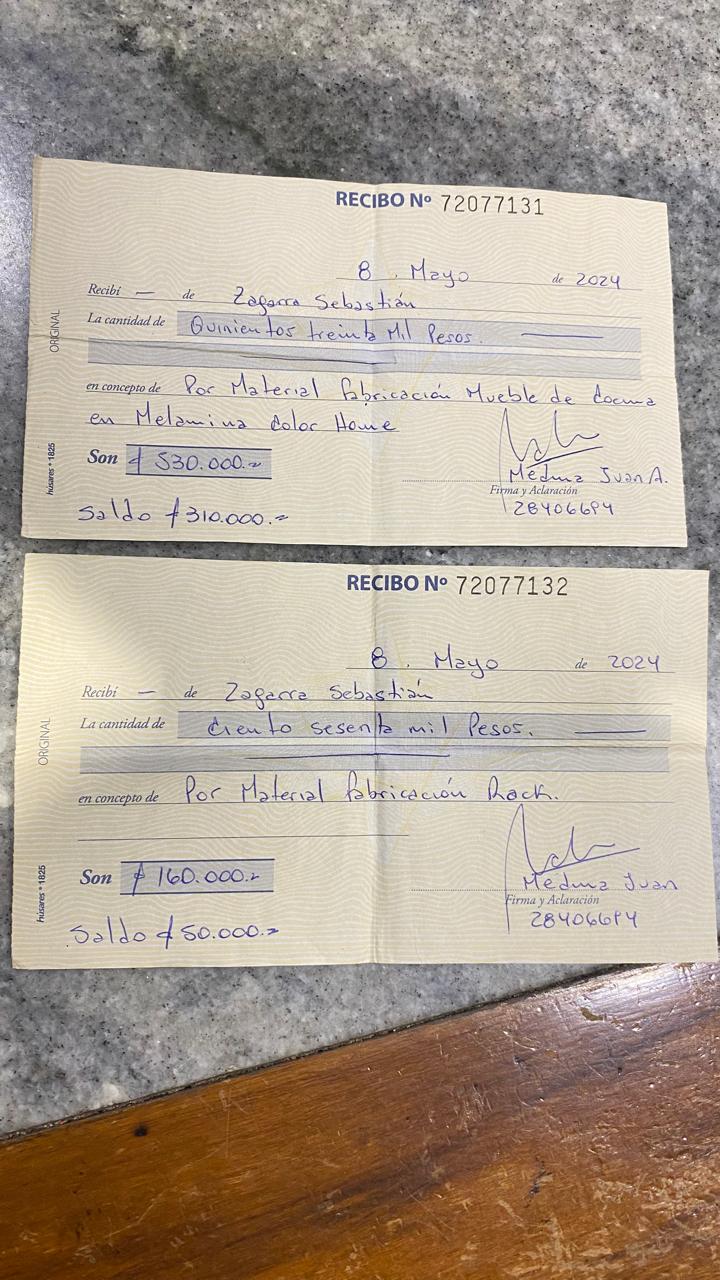 RECIBO Nº 72077131
8 . Mayo de 2024
Recibí — de Zagarra Sebastián
La cantidad de Quinientos treinta Mil Pesos.
en concepto de Por Material fabricación Mueble de Cocina
en Melamina Color Home
Son $ 530.000.-
Medina Juan A.
Firma y Aclaración
Saldo $ 310.000.-
28406694
ORIGINAL
húsares * 1825
RECIBO Nº 72077132
8 . Mayo de 2024
Recibí — de Zagarra Sebastián
La cantidad de Ciento sesenta mil Pesos.
en concepto de Por Material fabricación Rack.
Son $ 160.000.-
Medina Juan
Firma y Aclaración
Saldo $ 50.000.-
28406694
ORIGINAL
húsares * 1825